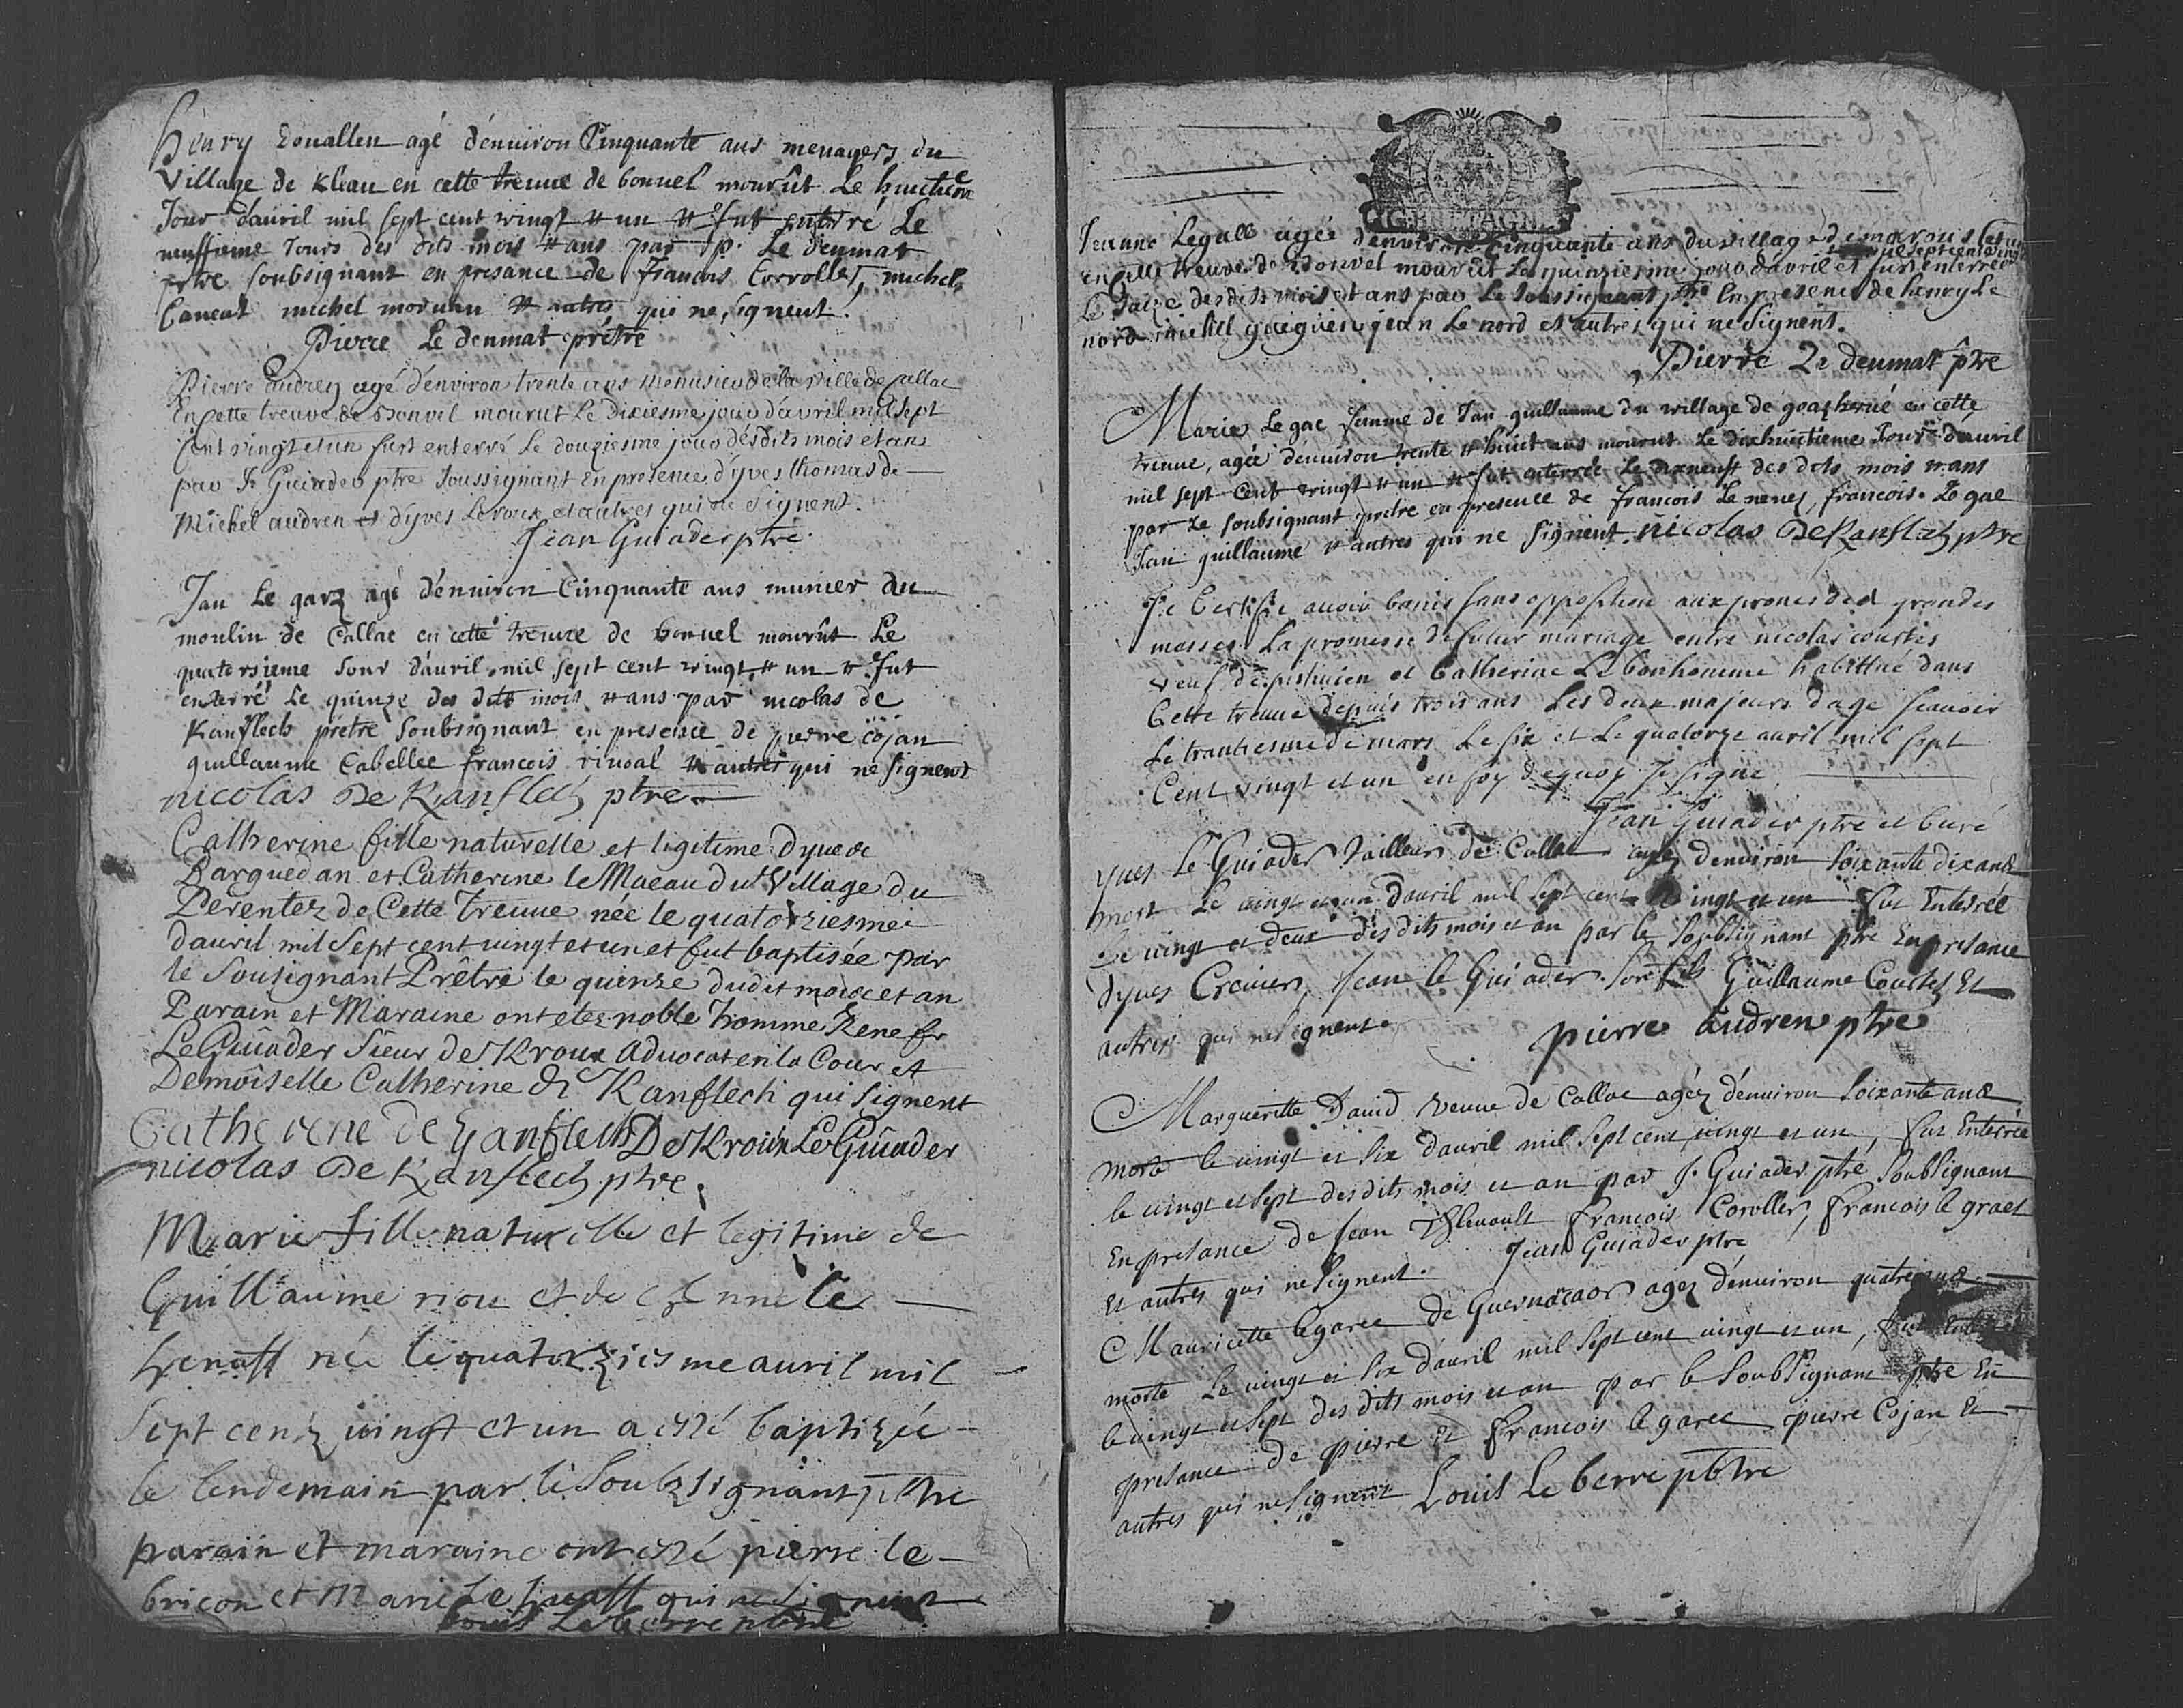 henry Douallen agé d'enuiron Cinquante ans menagers du
village de kleau en cette treuue de bonuel mourût le huictiem
Jour dauril mil sept cent vingt et un et fut enterré Le
neuffieme Jours des dits mois et ans par p. Le denmat
prtre soubsignant en presance de francois Corroller, michel
Caneut michel moruan et autres qui ne signent.
Pierre Le denmat prêtre
Pierre audren agé d'environ trente ans menusieu de la ville de callac
En cette treuve de Bonvel mourut Le dixiesme jour d'avril mil sept
cent vingt et un fust enterré Le douziesme jour désdits mois et ans
par J. Guiader ptre soussignant En presence d'yves thomas de
Michel audren et d'yves Leroux et autres qui ne signent.
Jean Guiader ptre
Jan Le garz agé d'enuiron Cinquante ans munier du
moulin de Callac en cette treuue de bonuel mourût Le
quatorsieme Jour dauril mil sept cent vingt et un et fut
enterré Le quinze des dits mois et ans par nicolas de
Kanflech prêtre soubsignant en presence de pierre cojan
guillaume Cabellec francois rivoal et autres qui ne signent
nicolas De Kanflech ptre
Catherine fille naturelle et legitime d'yues
Barguedan et Catherine le Maeau du Village du
Perentez de Cette Treuue née le quatorziesme
dauril mil Sept cent uingt et un et fut baptisée par
le Sousignant Prêtre le quinze dudit mois et an
Parain et Maraine ont etez noble homme Rene fr
Le Guiader Sieur de Kroux Aduocat en la Cour et
Demoiselle Catherine de Kanflech qui signent
Catherene de Kanflech De Kroux Le Guiader
nicolas De Kanflech ptre.
Marie fille naturelle et legitime de
Guillaume riou et de Le
henaff née le quatorziesme auril mil
sept cent uingt et un a esté baptizée
le lendemain par le Soubsignant pbtre
parain et maraine ont esté pierre le
bricon et Marie Le henaff qui ne signent
Louis Le berre pbtre
Jeanne Legall agée d'enuiron Cinquante ans du village de
en cette treuve de Bonvel mourût Le quinziesme jour d'avril et fust enterrée
Le Saize desdits mois et ans par Le soussignant ptre En presence de henry Le
nord michel jean Le nord et autres qui ne signent.
Pierre Le denmat ptre
Marie Le gac femme de Jan guillaume du village de goazherué en cette
treuue, agée d'enuiron trente et huict ans mourut Le dixhuictieme Jour dauril
mil sept cent vingt et un et fut enterrée Le dixneuff des dits mois et ans
par Le soubsignant prêtre en presence de francois Le nenez, francois Le gac
Jan guillaume et autres qui ne signent. nicolas De Kanflech ptre
Je Certifie auoir banis sans opposition aux prones des grandes
messes La promesse de futur mariage entre nicolas courtes
veuf de et Catherine Le bonhomme habittué dans
Cette treuue depuis trois ans Les deux majeurs dage scauoir
Le trantiesme de mars Le six et Le quatorze auril mil sept
Cent vingt et un en foy dequoy Je signe
Jean Guiader ptre et Curé
yues Le Guiader tailleur de Callac agez denuiron soixante dix ans
mort Le uingt et un dauril mil sept cent uingt et un fut Enterré
Le uingt et deux des dits mois et an par le soubsignant ptre En presance
d'yues Crcuier, Jean le Guiader son fils Guillaume Courtes Et
autres qui ne signent.
pierre audren ptre
Margueritte Dauid veuue de Callac agéz d'enuiron soixante ans
morte le uingt et six dauril mil sept cent uingt et un, fut Enterrée
le uingt et sept des dits mois et an par J. Guiader ptre soubsignant
En presance de Jean Thleuault francois Coroller, francois le graet
Et autres qui ne signent. Jean Guiader ptre
Mauricette legarec de Guernacaor agez d'enuiron quatre ans
morte Le uingt et six dauril mil sept cent uingt et un, fut
le uingt et sept des dits mois et an par le soubsignant ptre En
presance de pierre Et francois le garec pierre Cojan Et
autres qui ne signent Louis Le berre pbtre